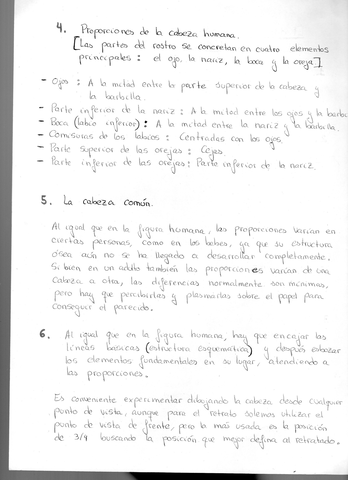 4. Proporciones de la cabeza humana.
[Las partes del rostro se concretan en cuatro elementos
principales : el ojo, la nariz, la boca y la oreja]
- Ojos : A la mitad entre la parte superior de la cabeza y
la barbilla.
- Parte inferior de la nariz : A la mitad entre los ojos y la barbi
- Boca (labio inferior) : A la mitad entre la nariz y la barbilla.
- Comisuras de los labios : Centradas con los ojos.
- Parte superior de las orejas : Cejas.
- Parte inferior de las orejas : Parte inferior de la nariz.
5. La cabeza común.
Al igual que en la figura humana, las proporciones varían en
ciertas personas, como en los bebes, ya que su estructura
ósea aún no se ha llegado a desarrollar completamente.
Si bien en un adulto también las proporciones varían de una
cabeza a otra, las diferencias normalmente son mínimas,
pero hay que percibirlas y plasmarlas sobre el papel para
conseguir el parecido.
6. Al igual que en la figura humana, hay que encajar las
líneas básicas (estructura esquemática) y después esbozar
los elementos fundamentales en su lugar, atendiendo a
las proporciones.
Es conveniente experimentar dibujando la cabeza desde cualquier
punto de vista, aunque para el retrato solemos utilizar el
punto de vista de frente, pero la más usada es la posición
de 3/4 buscando la posición que mejor defina al retratado.